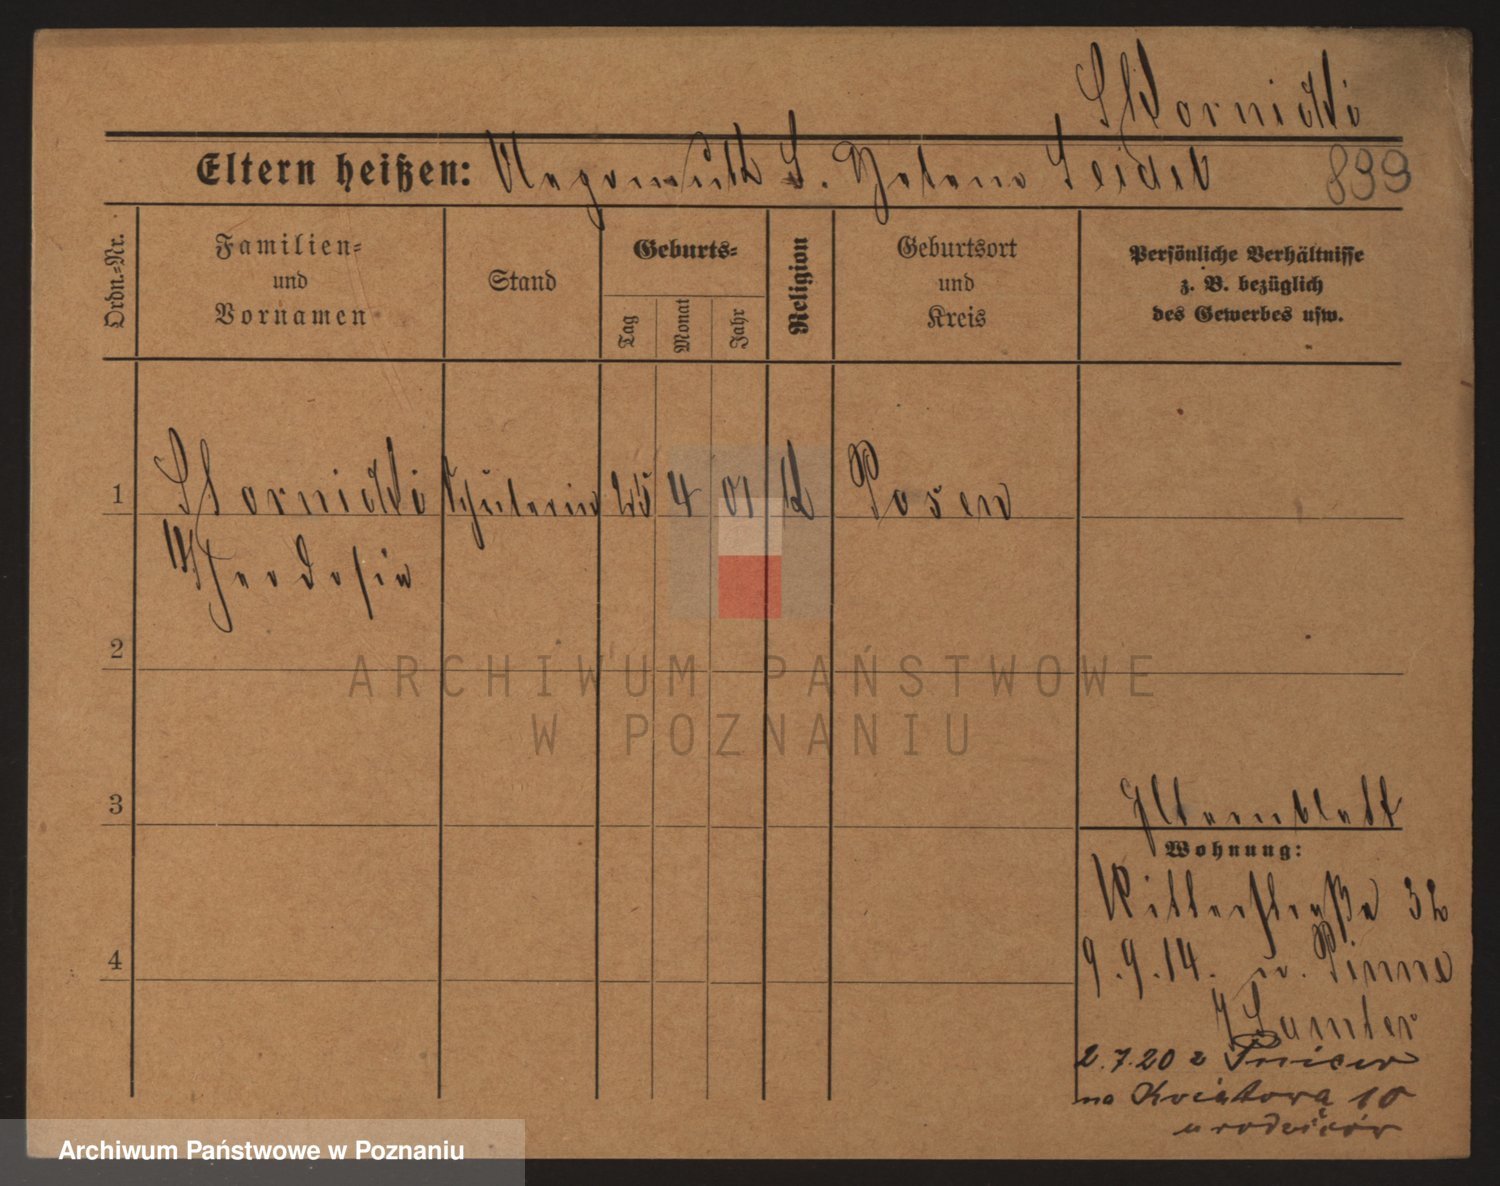 Skornicki
Eltern heißen: S. Helene Seidel 899
Ordn.-Nr.
Familien-
und
Vornamen
Stand
Geburts-
Tag
Monat
Jahr
Religion
Geburtsort
und
Kreis
Persönliche Verhältnisse
z. B. bezüglich
des Gewerbes usw.
1 Skornicki Schülerin 25 4 01 k Posen
Theodosia
2
ARCHIWUM PAŃSTWOWE
W POZNANIU
3
Elternblatt
Wohnung:
Ritterstraße 32
9.9.14. n. Pinne
4
Samter
2.7.20 z Pniew
na Kwiatową 10
u rodziców
Archiwum Państwowe w Poznaniu